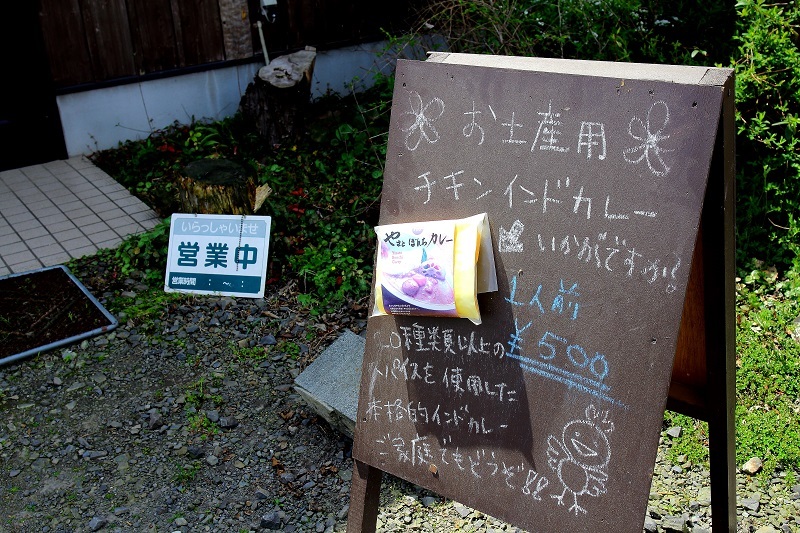 いらっしゃいませ
営業中
営業時間 : ～ :
お土産用
チキンインドカレー
いかがですか!
カレー
1人前
¥500
種類以上の
スパイスを使用した
本格的インドカレー
ご家庭でもどうぞ!!